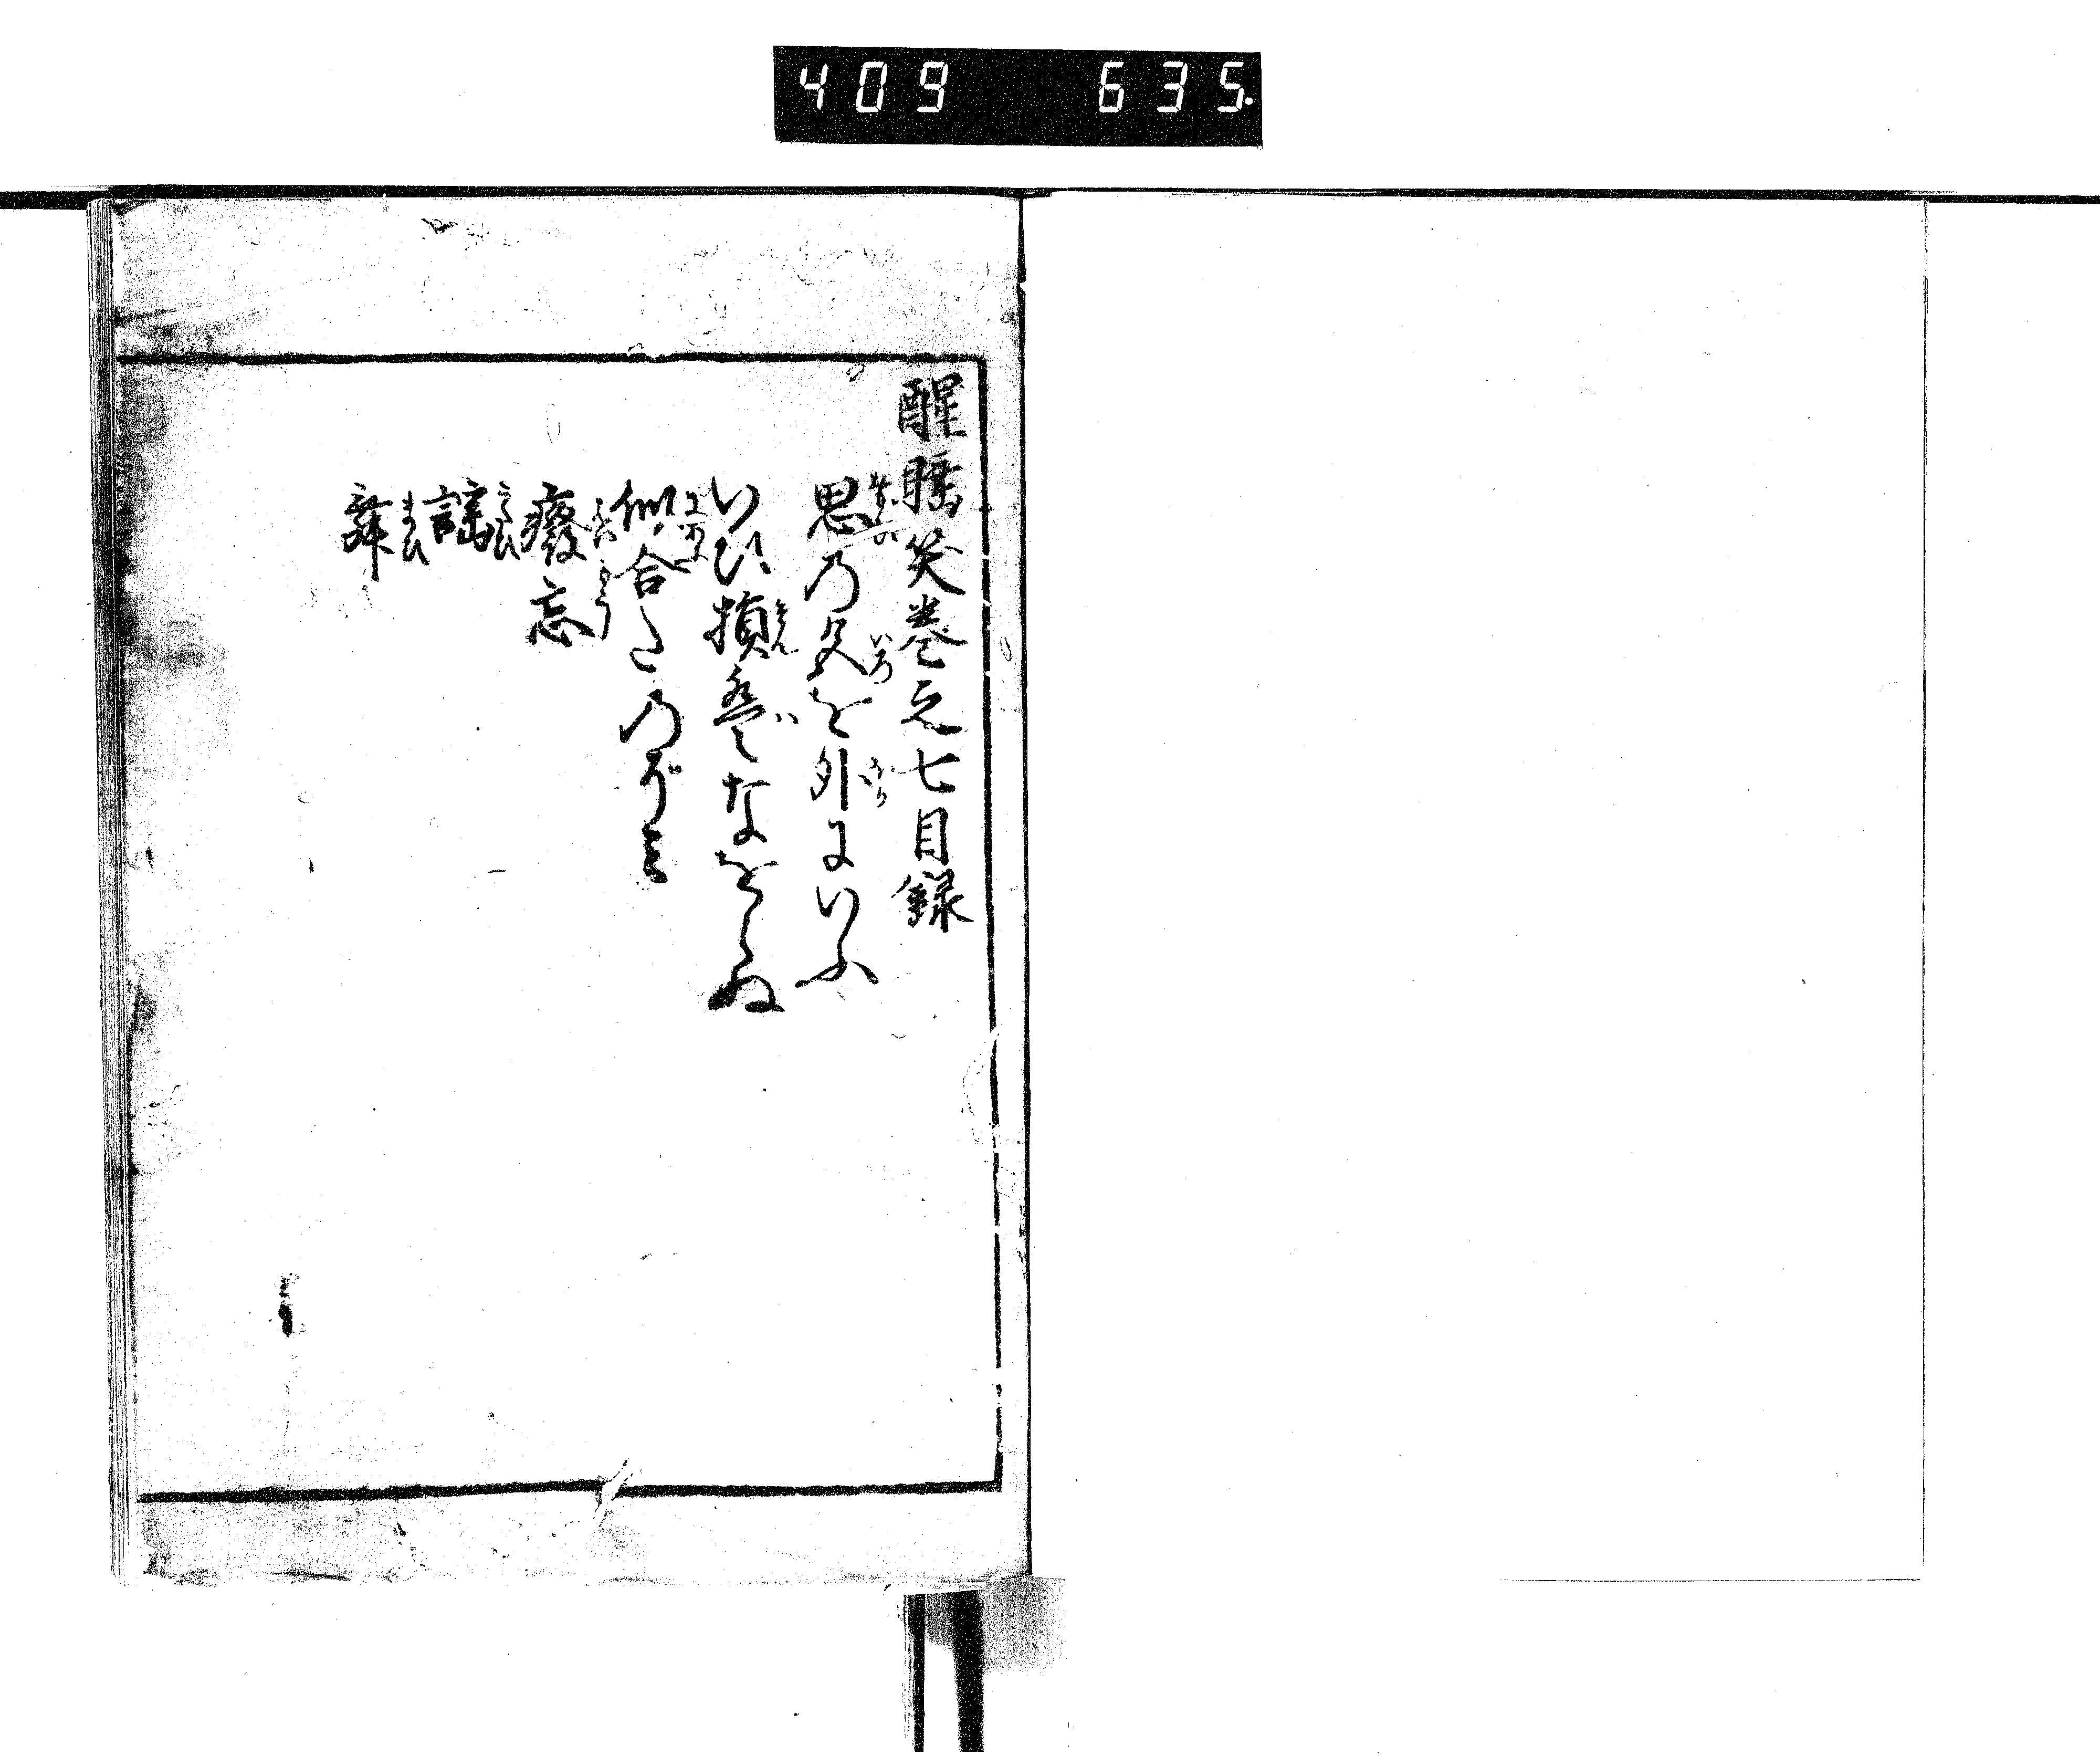 409 635.
醒睡笑巻之七目録
思乃色を外にいふ
いひ損はなをらぬ
似合たのぞみ
癈忘
謡
舞